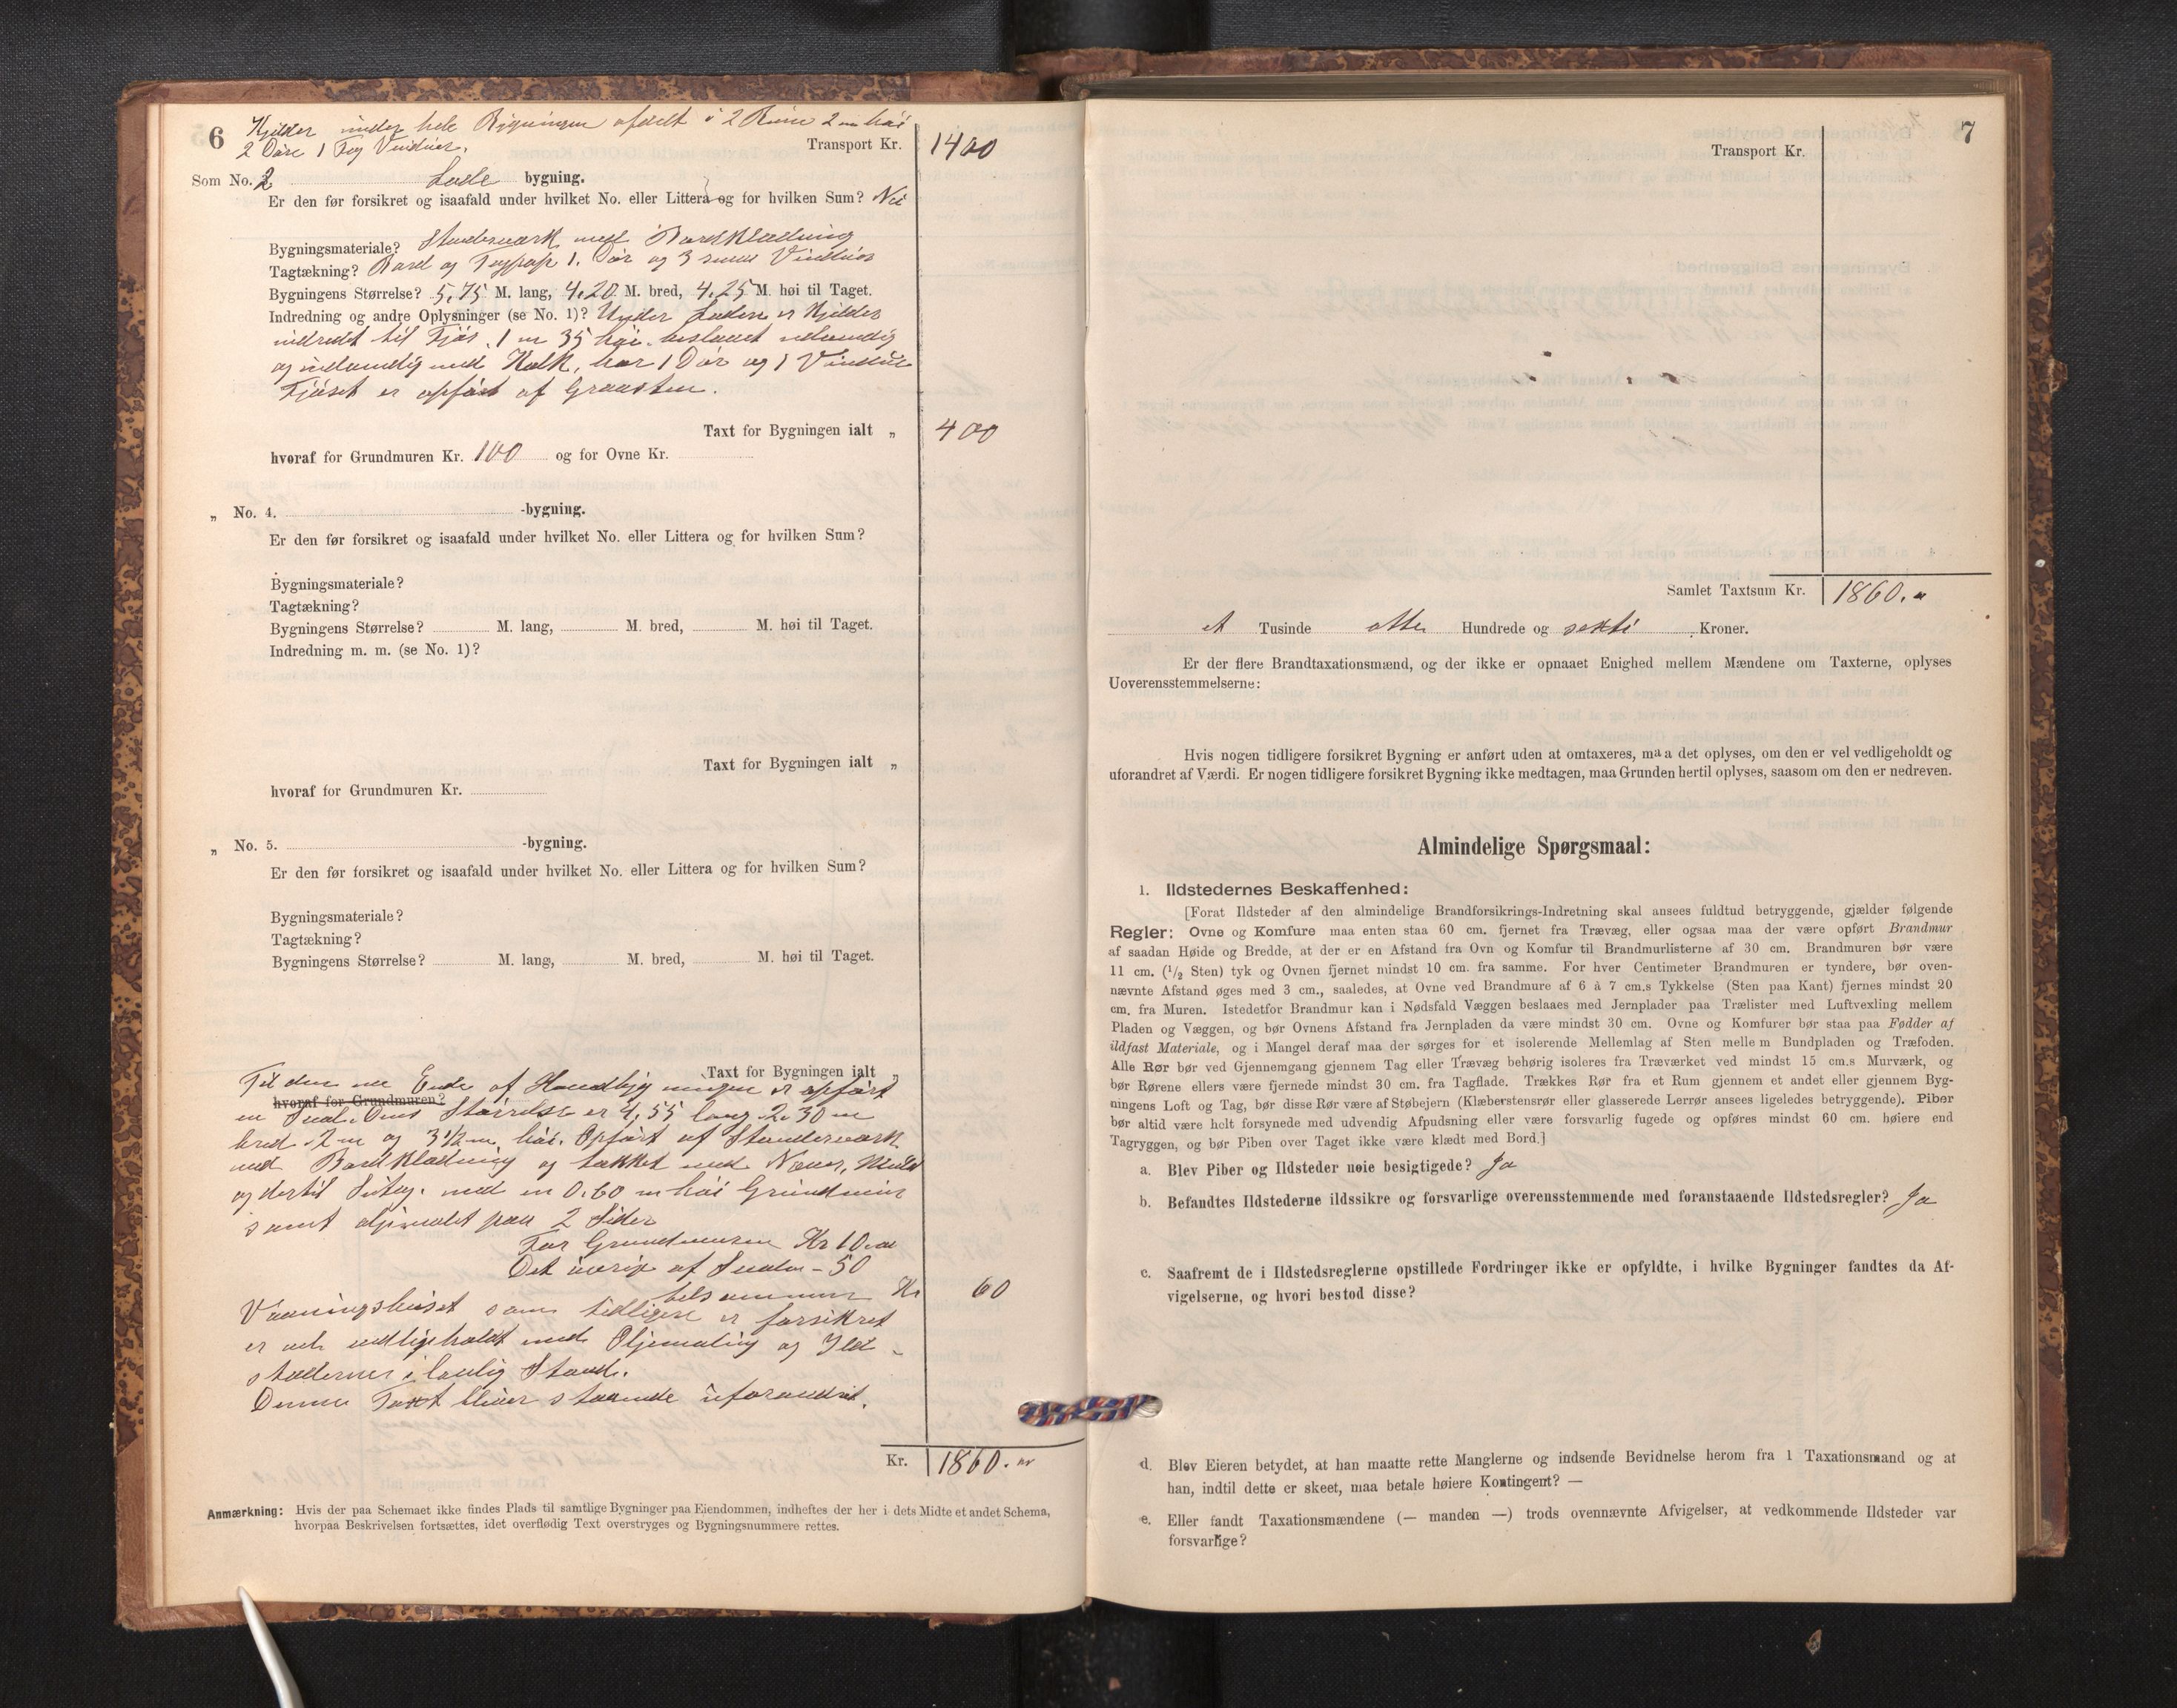 6
Kjelder under hele Bygningen afdelt i 2 Rum 2 m høi
2 Døre 1 Fag Vinduer.
Transport Kr. 1400
Som No. 2 Lade bygning.
Er den før forsikret og isaafald under hvilket No. eller Littera og for hvilken Sum? Nei
Bygningsmateriale? Stenderværk med Bordklædning
Tagtækning? Bord og Tagpap 1. Dør og 3 smaa Vinduer
Bygningens Størrelse? 5,75 M. lang, 4,20 M. bred, 4,25 M. høi til Taget.
Indredning og andre Oplysninger (se No. 1)? Under Laden er Kjelder
indredet til Fjøs, 1 m 35 høi. beslaaet udvendig
og indvendig med Kalk, har 1 Dør og 1 Vindue
Fjøset er opført af Graasten.
Taxt for Bygningen ialt „ 400
hvoraf for Grundmuren Kr. 100 og for Ovne Kr.
„ No. 4. -bygning.
Er den før forsikret og isaafald under hvilket No. eller Littera og for hvilken Sum?
Bygningsmateriale?
Tagtækning?
Bygningens Størrelse? M. lang, M. bred, M. høi til Taget.
Indredning m. m. (se No. 1)?
Taxt for Bygningen ialt „
hvoraf for Grundmuren Kr.
„ No. 5. -bygning.
Er den før forsikret og isaafald under hvilket No. eller Littera og for hvilken Sum?
Bygningsmateriale?
Tagtækning?
Bygningens Størrelse? M. lang, M. bred, M. høi til Taget.
Taxt for Bygningen ialt „
Til den ene Ende af Hovedbygningen er opført
hvoraf for Grundmuren?
en Sval. Dens Størrelse er 4,55 lang 2.30 m
bred 2 m og 3 1/2 m høi. Opført af Stenderværk
med Bordklædning og tækket med Næver,
og dertil med en 0.60 m høi Grundmur
samt oljemalet paa 2 Sider
For Grundmuren Kr 10.00
Det øvrige af Svalen - 50
tilsammen Kr 60
Vaaningshuset som tidligere er forsikret
er vel vedligeholdt med Oljemaling og Ild-
stederne i lovlig Stand.
Denne Taxt bliver staaende uforandret.
Kr. 1860.
Anmærkning: Hvis der paa Schemaet ikke findes Plads til samtlige Bygninger paa Eiendommen, indheftes der her i dets Midte et andet Schema,
hvorpaa Beskrivelsen fortsættes, idet overflødig Text overstryges og Bygningsnummere rettes.
7
Transport Kr.
Samlet Taxtsum Kr. 1860.
et Tusinde otte Hundrede og sexti Kroner.
Er der flere Brandtaxationsmænd, og der ikke er opnaaet Enighed mellem Mændene om Taxterne, oplyses
Uoverensstemmelserne:
Hvis nogen tidligere forsikret Bygning er anført uden at omtaxeres, maa det oplyses, om den er vel vedligeholdt og
uforandret af Værdi. Er nogen tidligere forsikret Bygning ikke medtagen, maa Grunden hertil oplyses, saasom om den er nedreven.
Almindelige Spørgsmaal:
1. Ildstedernes Beskaffenhed:
[Forat Ildsteder af den almindelige Brandforsikrings-Indretning skal ansees fuldtud betryggende, gjælder følgende
Regler: Ovne og Komfure maa enten staa 60 cm. fjernet fra Trævæg, eller ogsaa maa der være opført Brandmur
af saadan Høide og Bredde, at der er en Afstand fra Ovn og Komfur til Brandmurlisterne af 30 cm. Brandmuren bør være
11 cm. (1/2 Sten) tyk og Ovnen fjernet mindst 10 cm. fra samme. For hver Centimeter Brandmuren er tyndere, bør oven-
nævnte Afstand øges med 3 cm., saaledes, at Ovne ved Brandmure af 6 à 7 cm.s Tykkelse (Sten paa Kant) fjernes mindst 20
cm. fra Muren. Istedetfor Brandmur kan i Nødsfald Væggen beslaaes med Jernplader paa Trælister med Luftvexling mellem
Pladen og Væggen, og bør Ovnens Afstand fra Jernpladen da være mindst 30 cm. Ovne og Komfurer bør staa paa Fødder af
ildfast Materiale, og i Mangel deraf maa der sørges for et isolerende Mellemlag af Sten mellem Bundpladen og Træfoden.
Alle Rør bør ved Gjennemgang gjennem Tag eller Trævæg behørig isoleres fra Træværket ved mindst 15 cm.s Murværk, og
bør Rørene ellers være fjernede mindst 30 cm. fra Tagflade. Trækkes Rør fra et Rum gjennem et andet eller gjennem Byg-
ningens Loft og Tag, bør disse Rør være af Støbejern (Klæberstensrør eller glasserede Lerrør ansees ligeledes betryggende). Piber
bør altid være helt forsynede med udvendig Afpudsning eller være forsvarlig fugede og opføres mindst 60 cm. høiere end
Tagryggen, og bør Piben over Taget ikke være klædt med Bord.]
a. Blev Piber og Ildsteder nøie besigtigede? Ja
b. Befandtes Ildstederne ildssikre og forsvarlige overensstemmende med foranstaaende Ildstedsregler? Ja
c. Saafremt de i Ildstedsreglerne opstillede Fordringer ikke er opfyldte, i hvilke Bygninger fandtes da Af-
vigelserne, og hvori bestod disse?
d. Blev Eieren betydet, at han maatte rette Manglerne og indsende Bevidnelse herom fra 1 Taxationsmand og at
han, indtil dette er skeet, maa betale høiere Kontingent? —
e. Eller fandt Taxationsmændene (— manden —) trods ovennævnte Afvigelser, at vedkommende Ildsteder var
forsvarlige?